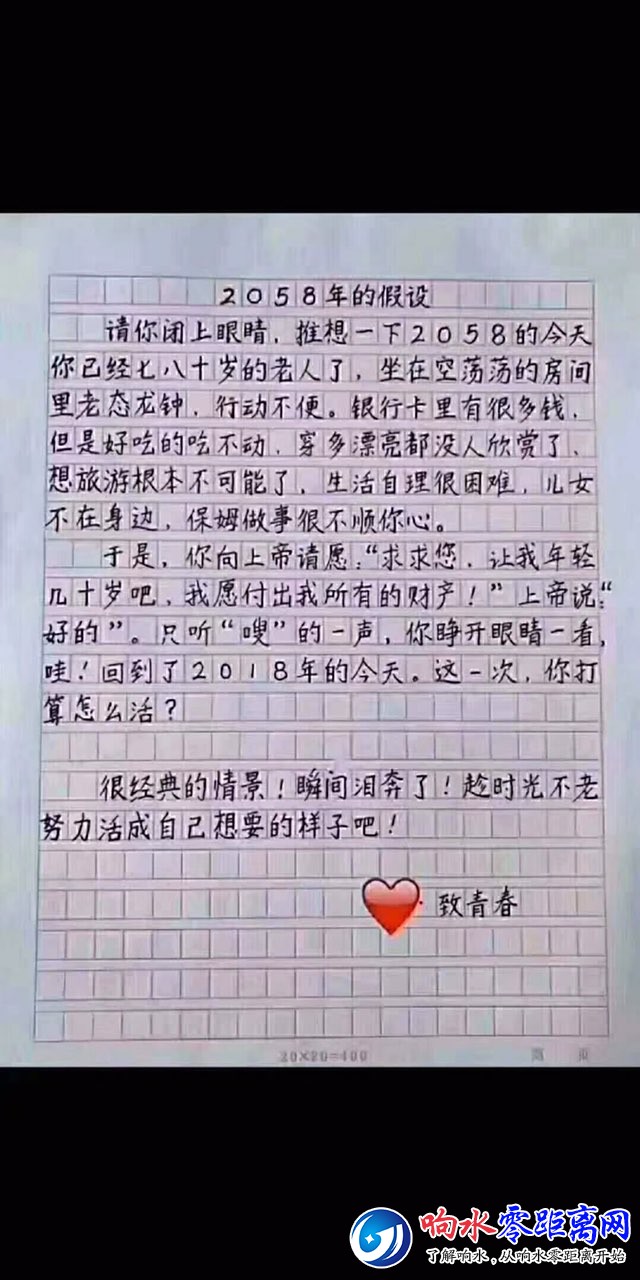 2058年的假设
请你闭上眼睛，推想一下2058的今天
你已经七八十岁的老人了，坐在空荡荡的房间
里老态龙钟，行动不便。银行卡里有很多钱，
但是好吃的吃不动，穿多漂亮都没人欣赏了、
想旅游根本不可能了，生活自理很困难，儿女
不在身边，保姆做事很不顺你心。
于是，你向上帝请愿："求求您，让我年轻
几十岁吧，我愿付出我所有的财产！"上帝说："
好的"。只听"嗖"的一声，你睁开眼睛一看，
哇！回到了2018年的今天。这一次，你打
算怎么活？
很经典的情景！瞬间泪奔了！趁时光不老
努力活成自己想要的样子吧！
致青春
20×20=400
第 页
响水零距离网
了解响水，从响水零距离开始